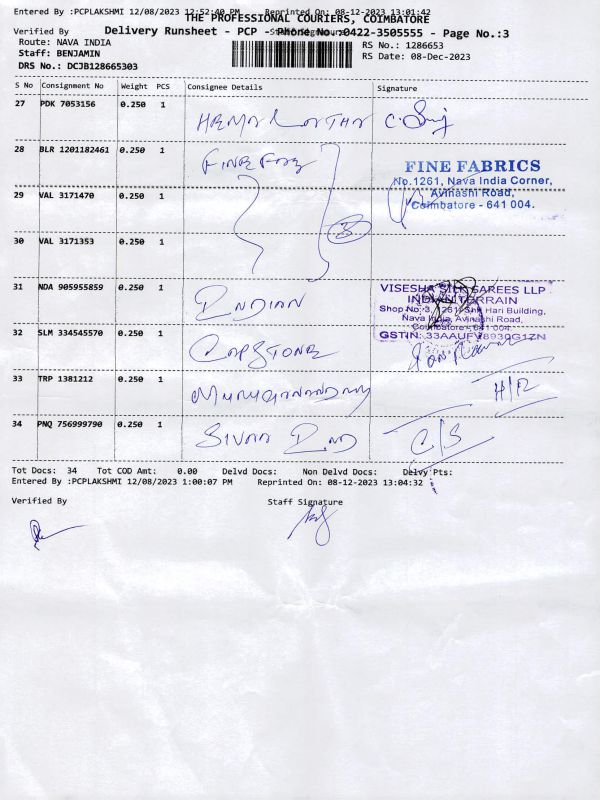 Entered By :PCPLAKSHMI 12/08/2023 12:52:40 PM Reprinted On: 08-12-2023 13:01:42
THE PROFESSIONAL COURIERS, COIMBATORE
Verified By Staff Signature
Delivery Runsheet - PCP - Phone No.:0422-3505555 - Page No.:3
Route: NAVA INDIA
RS No.: 1286653
Staff: BENJAMIN
RS Date: 08-Dec-2023
DRS No.: DCJB128665303
S No Consignment No Weight PCS Consignee Details Signature
27 PDK 7053156 0.250 1
28 BLR 1201182461 0.250 1
FINE FAB
FINE FABRICS
No.1261, Nava India Corner,
Avinashi Road,
Coimbatore - 641 004.
29 VAL 3171470 0.250 1
3
30 VAL 3171353 0.250 1
31 NDA 905955859 0.250 1 INDIAN
VISESHA SILK SAREES LLP
INDIAN TERRAIN
Shop No:3, 1261, Shri Hari Building,
Nava India, Avinashi Road,
Coimbatore - 641 004.
GSTIN: 33AAUFV8930G1ZN
32 SLM 334545570 0.250 1 CAPSTONE
33 TRP 1381212 0.250 1 MURUGANANDAM H/R
34 PNQ 756999790 0.250 1 SIVAA IND C/S
Tot Docs: 34 Tot COD Amt: 0.00 Delvd Docs: Non Delvd Docs: Delvy Pts:
Entered By :PCPLAKSHMI 12/08/2023 1:00:07 PM Reprinted On: 08-12-2023 13:04:32
Verified By Staff Signature